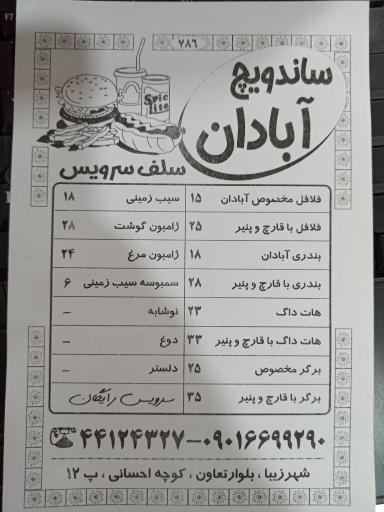 ۷۸۶
ساندویچ
آبادان
Spic
lite
سلف سرویس
فلافل مخصوص آبادان ۱۵ سیب زمینی ۱۸
فلافل با قارچ و پنیر ۲۵ ژامبون گوشت ۲۸
بندری آبادان ۱۸ ژامبون مرغ ۲۴
بندری با قارچ و پنیر ۲۸ سمبوسه سیب زمینی ۶
هات داگ ۲۳ نوشابه –
هات داگ با قارچ و پنیر ۳۳ دوغ –
برگر مخصوص ۲۵ دلستر –
برگر با قارچ و پنیر ۳۵ سرویس رایگان
۴۴۱۲۴۳۲۷-۰۹۰۱۶۶۹۹۲۹۰
شهرزیبا ، بلوار تعاون ، کوچه احسانی ، پ ۱۲